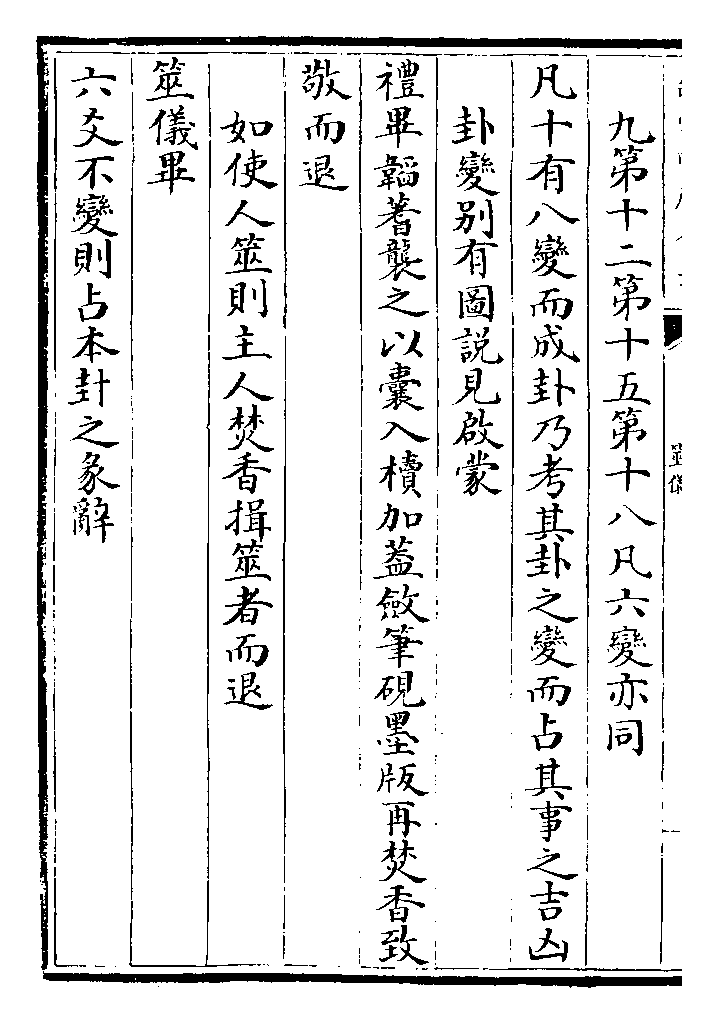 九第十二第十五第十八凡六變亦同
凡十有八變而成卦乃考其卦之變而占其事之吉凶
卦變别有圖說見啟蒙
禮畢韜蓍襲之以囊入櫝加蓋斂筆硯墨版再焚香致
敬而退
如使人筮則主人焚香揖筮者而退
筮儀畢
六爻不變則占本卦之彖辭